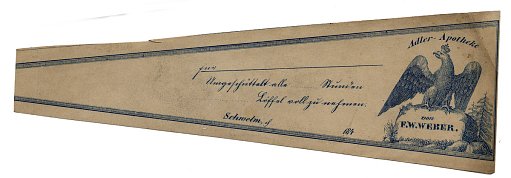 Adler-Apotheke
von
F.W.WEBER.
für
Umgeschüttelt alle Stunden
Löffel voll zu nehmen.
Schwelm, d 184